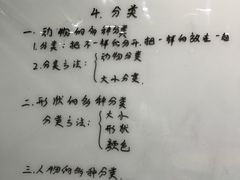 4. 分类
一. 动物的多种分类
1. 分类: 把不一样的分开, 把一样的放在一起
2. 分类方法: { 动物分类
大小分类.
二. 形状的多种分类
分类方法: { 大小
形状
颜色
三. 人物的多种分类.